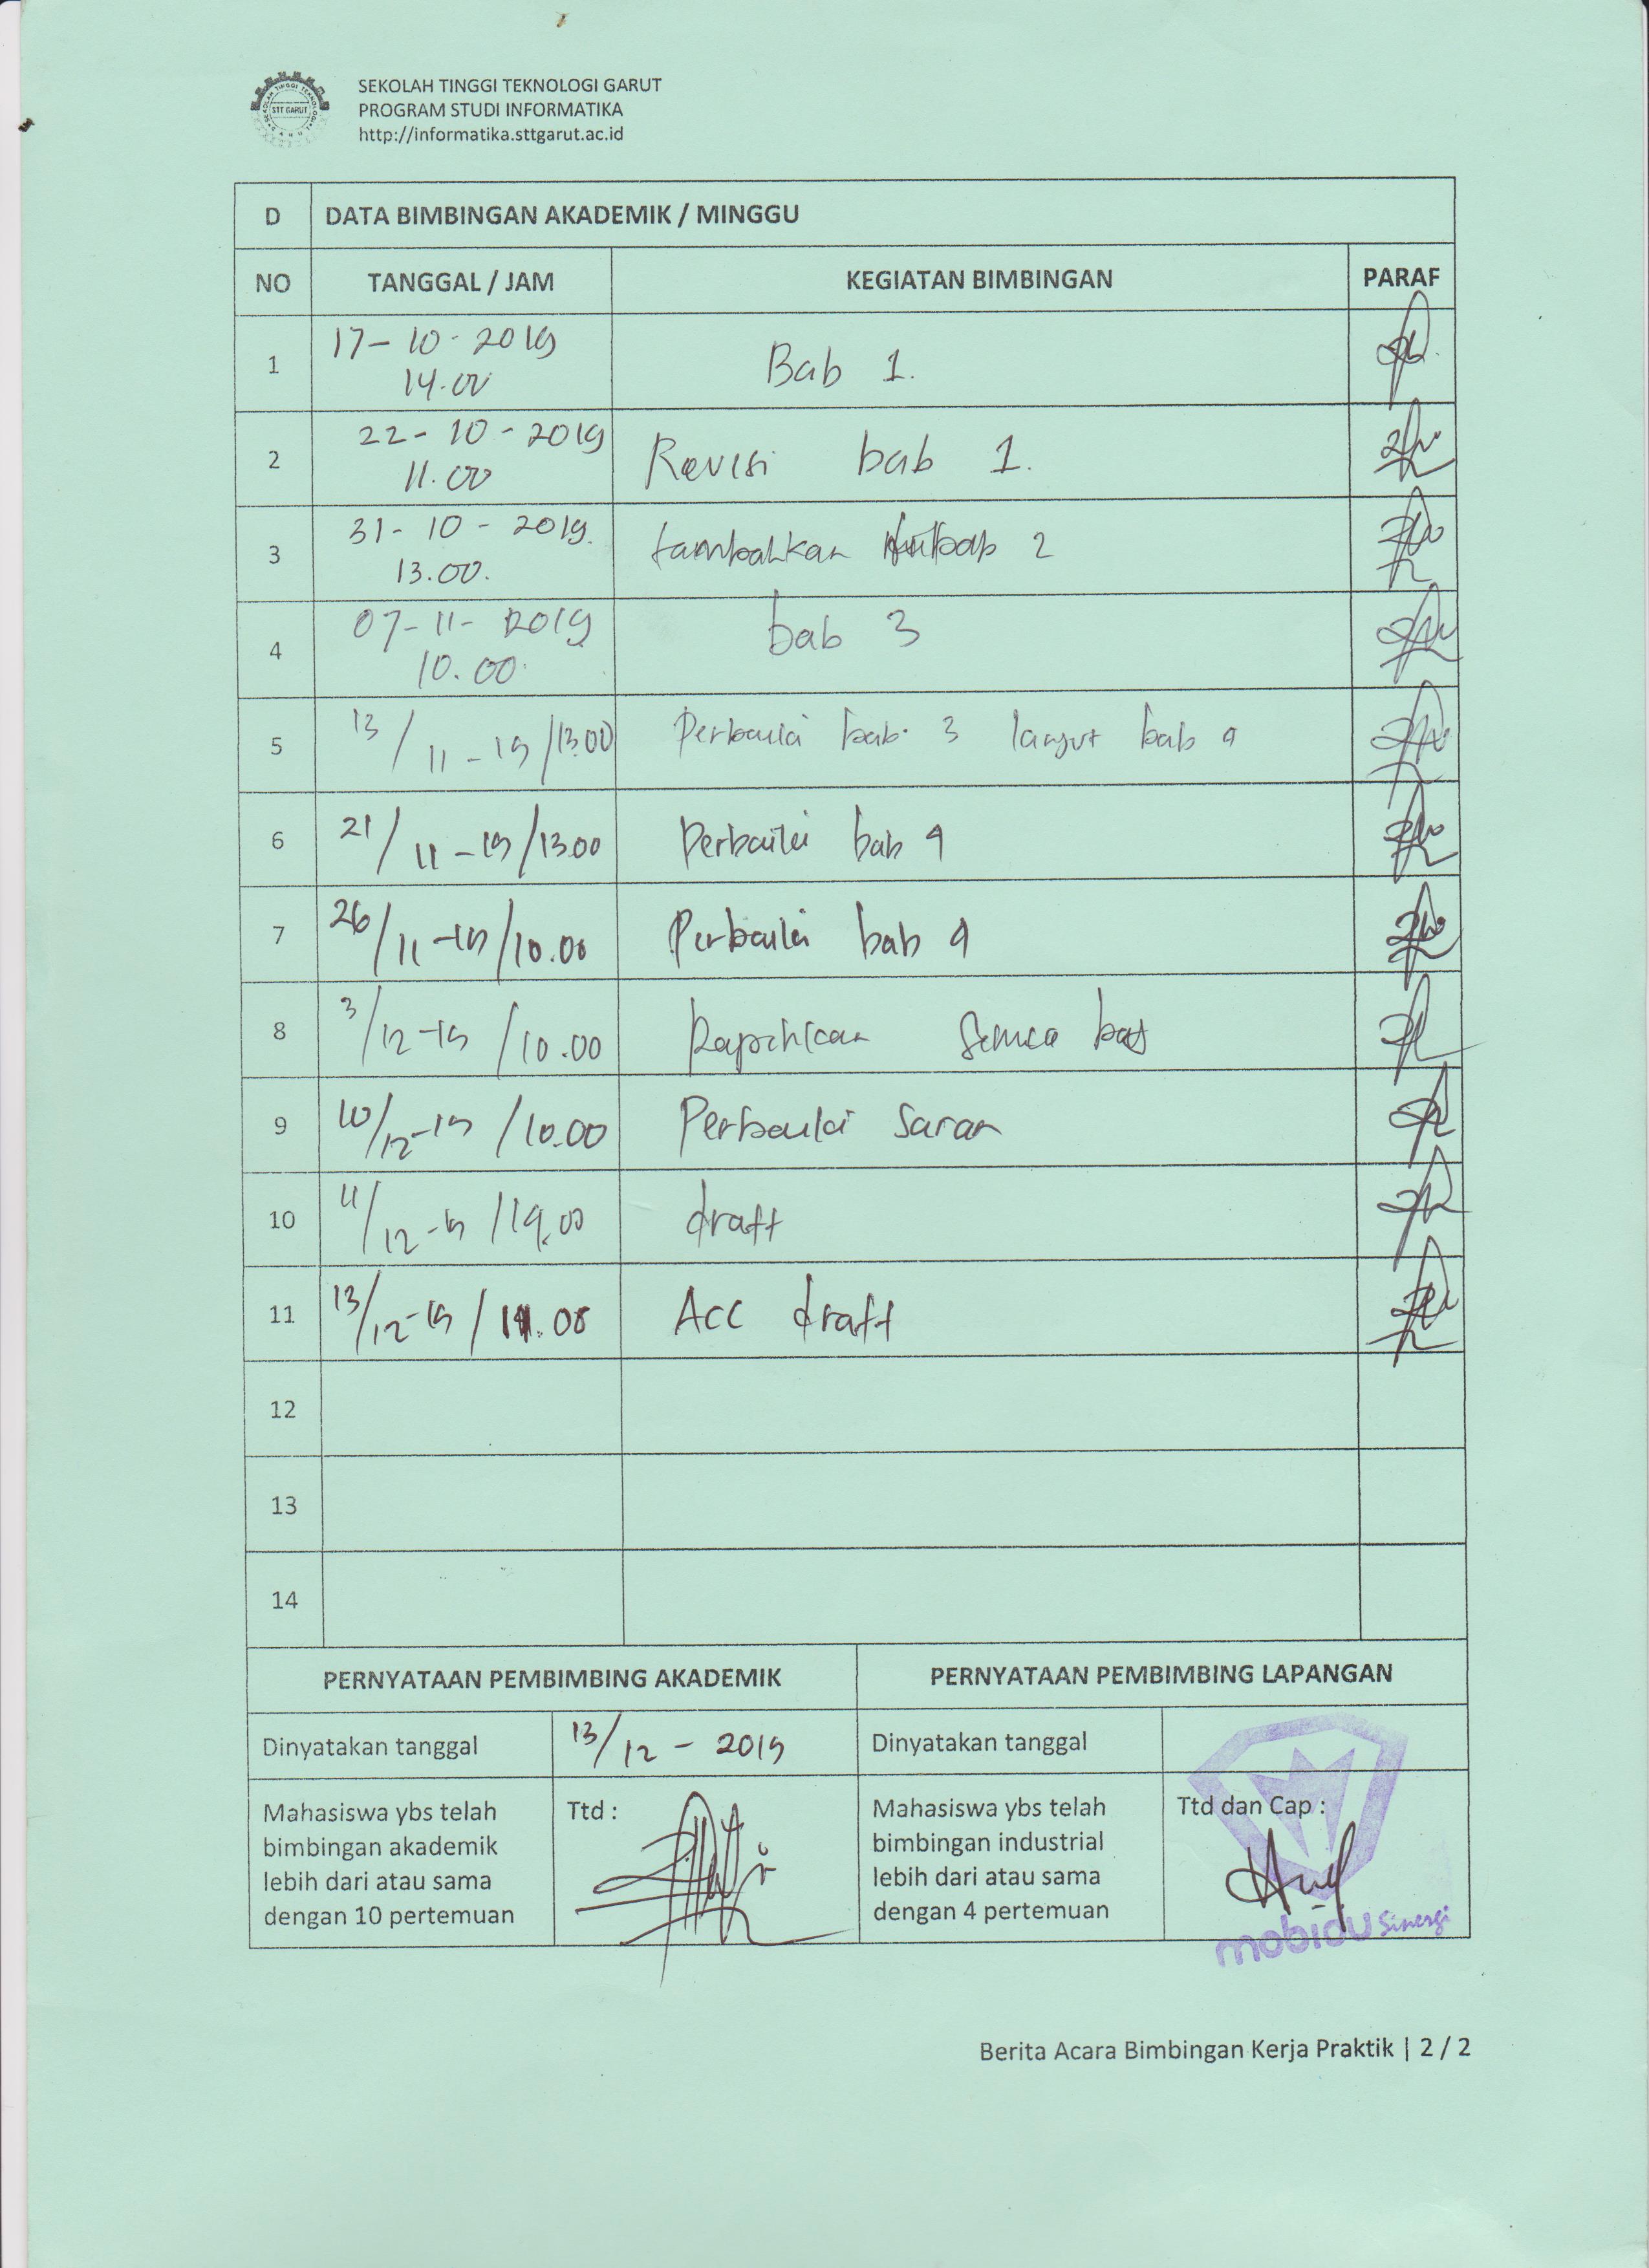 SEKOLAH TINGGI TEKNOLOGI GARUT
PROGRAM STUDI INFORMATIKA
http://informatika.sttgarut.ac.id
STT GARUT
D DATA BIMBINGAN AKADEMIK / MINGGU
NO TANGGAL / JAM KEGIATAN BIMBINGAN PARAF
1 17-10-2019 Bab 1.
14.00
2 22-10-2019 Revisi bab 1.
11.00
3 31-10-2019. tambahkan bab 2
13.00.
4 07-11-2019 bab 3
10.00.
5 13/11-19/13.00 Perbaiki bab 3 lanjut bab 4
6 21/11-19/13.00 Perbaiki bab 4
7 26/11-19/10.00 Perbaiki bab 4
8 3/12-19/10.00 Rapihkan semua bab
9 10/12-19/10.00 Perbaiki saran
10 11/12-19/14.00 draft
11 13/12-19/ Acc draft
12
13
14
PERNYATAAN PEMBIMBING AKADEMIK PERNYATAAN PEMBIMBING LAPANGAN
Dinyatakan tanggal 13/12-2019 Dinyatakan tanggal
Mahasiswa ybs telah Ttd : Mahasiswa ybs telah Ttd dan Cap :
bimbingan akademik bimbingan industrial
lebih dari atau sama lebih dari atau sama
dengan 10 pertemuan dengan 4 pertemuan
mobidu Sinergi
Berita Acara Bimbingan Kerja Praktik | 2 / 2